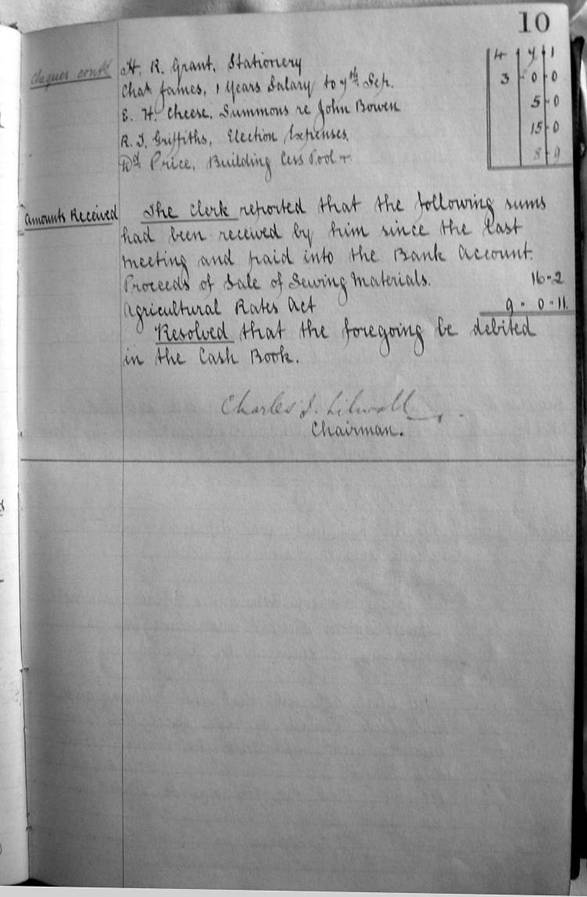 10
Cheques contd H. R. Grant, Stationery 4 4 1
Chas James, 1 Years Salary to 7th Sep. 3 0 0
E. H. Cheese, Summons re John Bowen 5 0
R. J. Griffiths, Election Expenses, 15 0
Wd Price, Building Cess Pool 8 9
Amounts Received The Clerk reported that the following sums
had been received by him since the last
meeting and paid into the Bank Account.
Proceeds of Sale of Sewing Materials. 16-2
Agricultural Rates Act 9-0-11
Resolved that the foregoing be debited
in the Cash Book.
Charles J. Lilwall
Chairman.